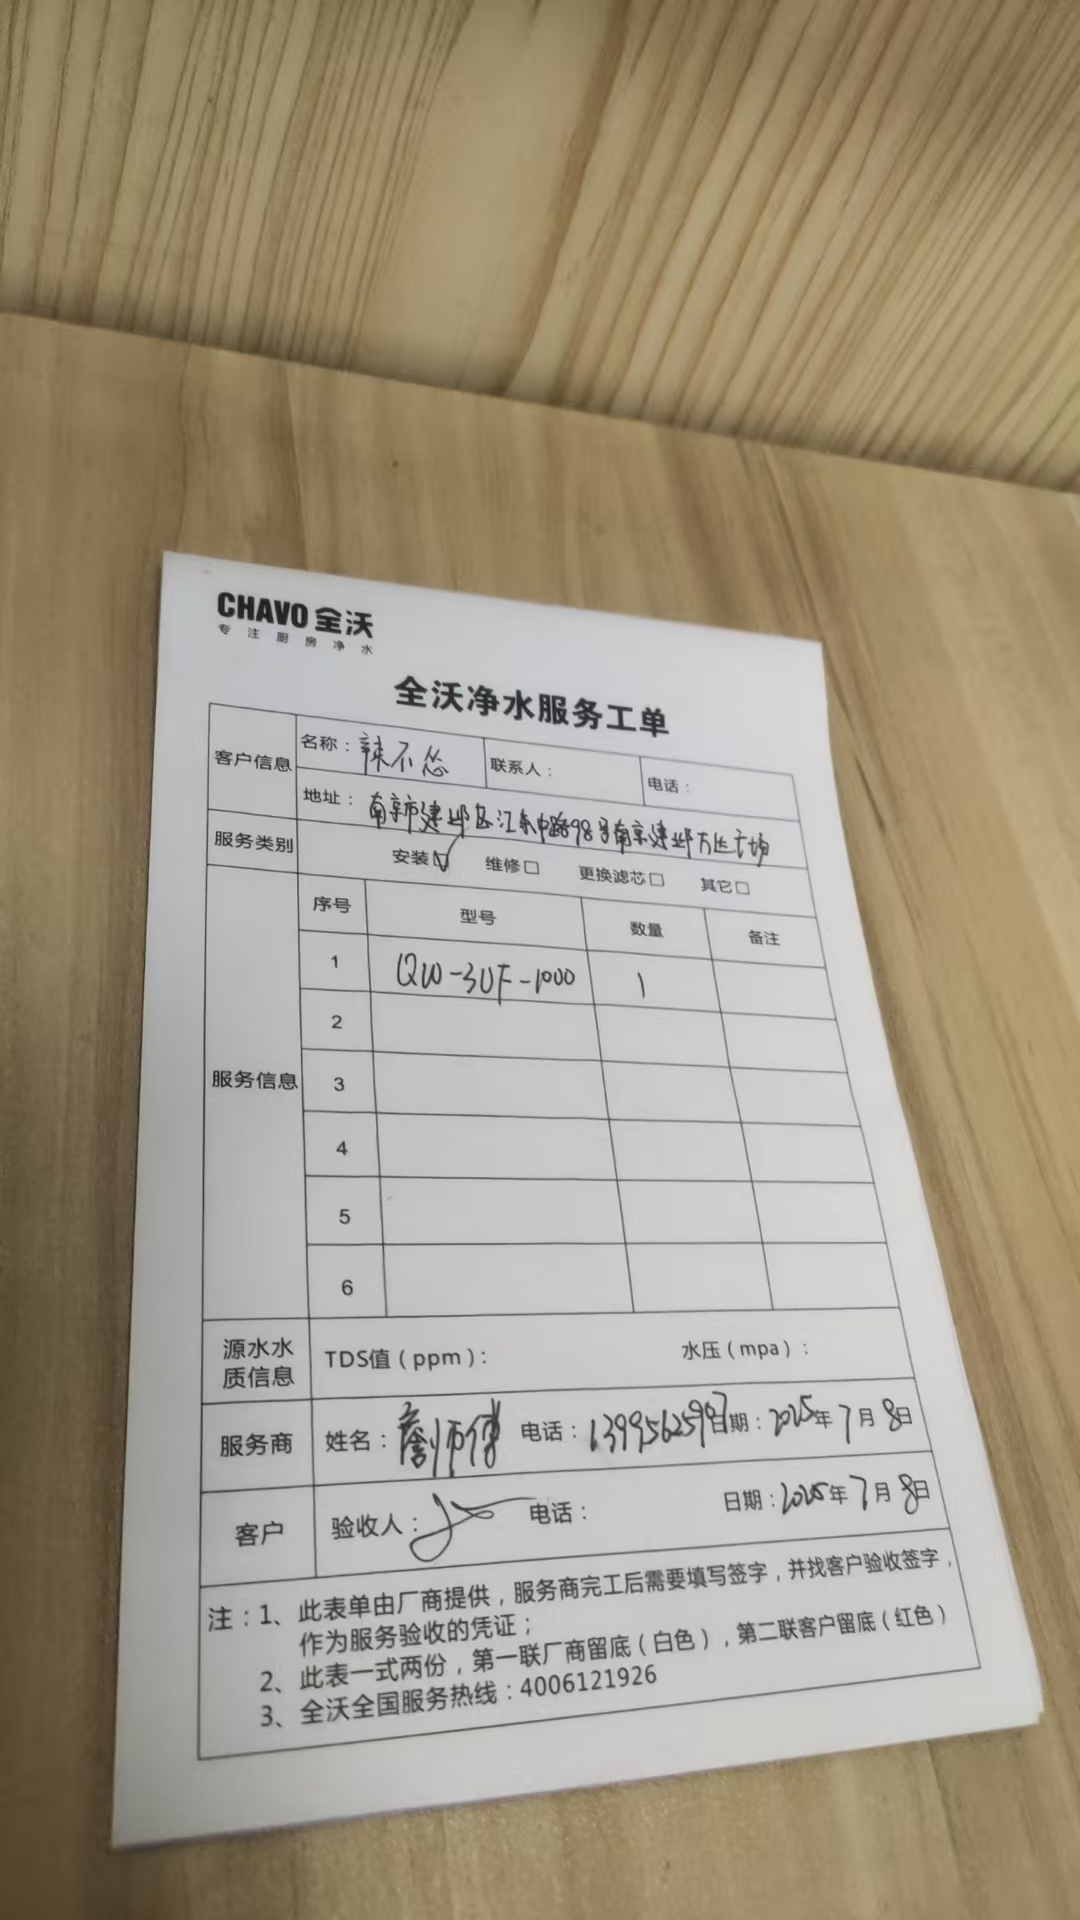 CHAVO 全沃
专注厨房净水
全沃净水服务工单
客户信息 名称：辣不怂 联系人： 电话：
地址：南京市建邺区江东中路98号南京建邺万达广场
服务类别 安装☑ 维修□ 更换滤芯□ 其它□
服务信息
序号 型号 数量 备注
1 QW-3UF-1000 1
2
3
4
5
6
源水水质信息 TDS值（ppm）： 水压（mpa）：
服务商 姓名：詹师傅 电话：13995625997 日期：2025年7月8日
客户 验收人： 电话： 日期：2025年7月8日
注：1、此表单由厂商提供，服务商完工后需要填写签字，并找客户验收签字，
作为服务验收的凭证；
2、此表一式两份，第一联厂商留底（白色），第二联客户留底（红色）
3、全沃全国服务热线：4006121926